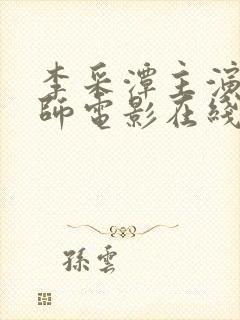 李采潭主演
師電影在綫
孫雲